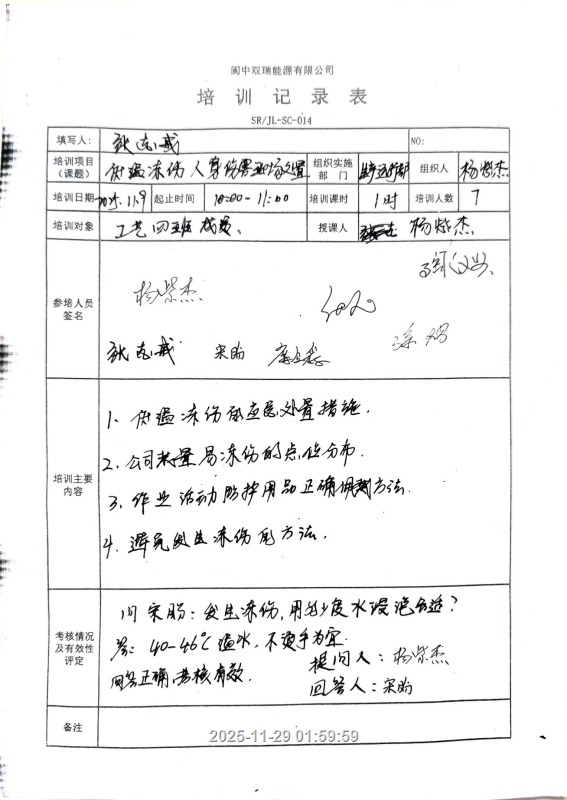 阆中双瑞能源有限公司
培训记录表
SR/JL-SC-014
填写人: 张志成 NO:
培训项目(课题) 低温冻伤人身伤害现场处置 组织实施部门 生产运行部 组织人 杨紫杰
培训日期 2025.11.9 起止时间 10:00-11:00 培训课时 1时 培训人数 7
培训对象 工艺四班成员。 授课人 杨紫杰
参培人员签名
杨紫杰
张志成 宋盼
培训主要内容
1、低温冻伤的应急处置措施.
2、公司易冻伤的点位分布.
3、作业活动防护用品正确佩戴方法.
4、避免发生冻伤的方法.
考核情况及有效性评定
问宋盼:发生冻伤,用多少度水浸泡合适?
答:40-46℃温水,不烫手为宜.
提问人:杨紫杰
回答正确,考核有效.
回答人:宋盼
备注
2025-11-29 01:59:59